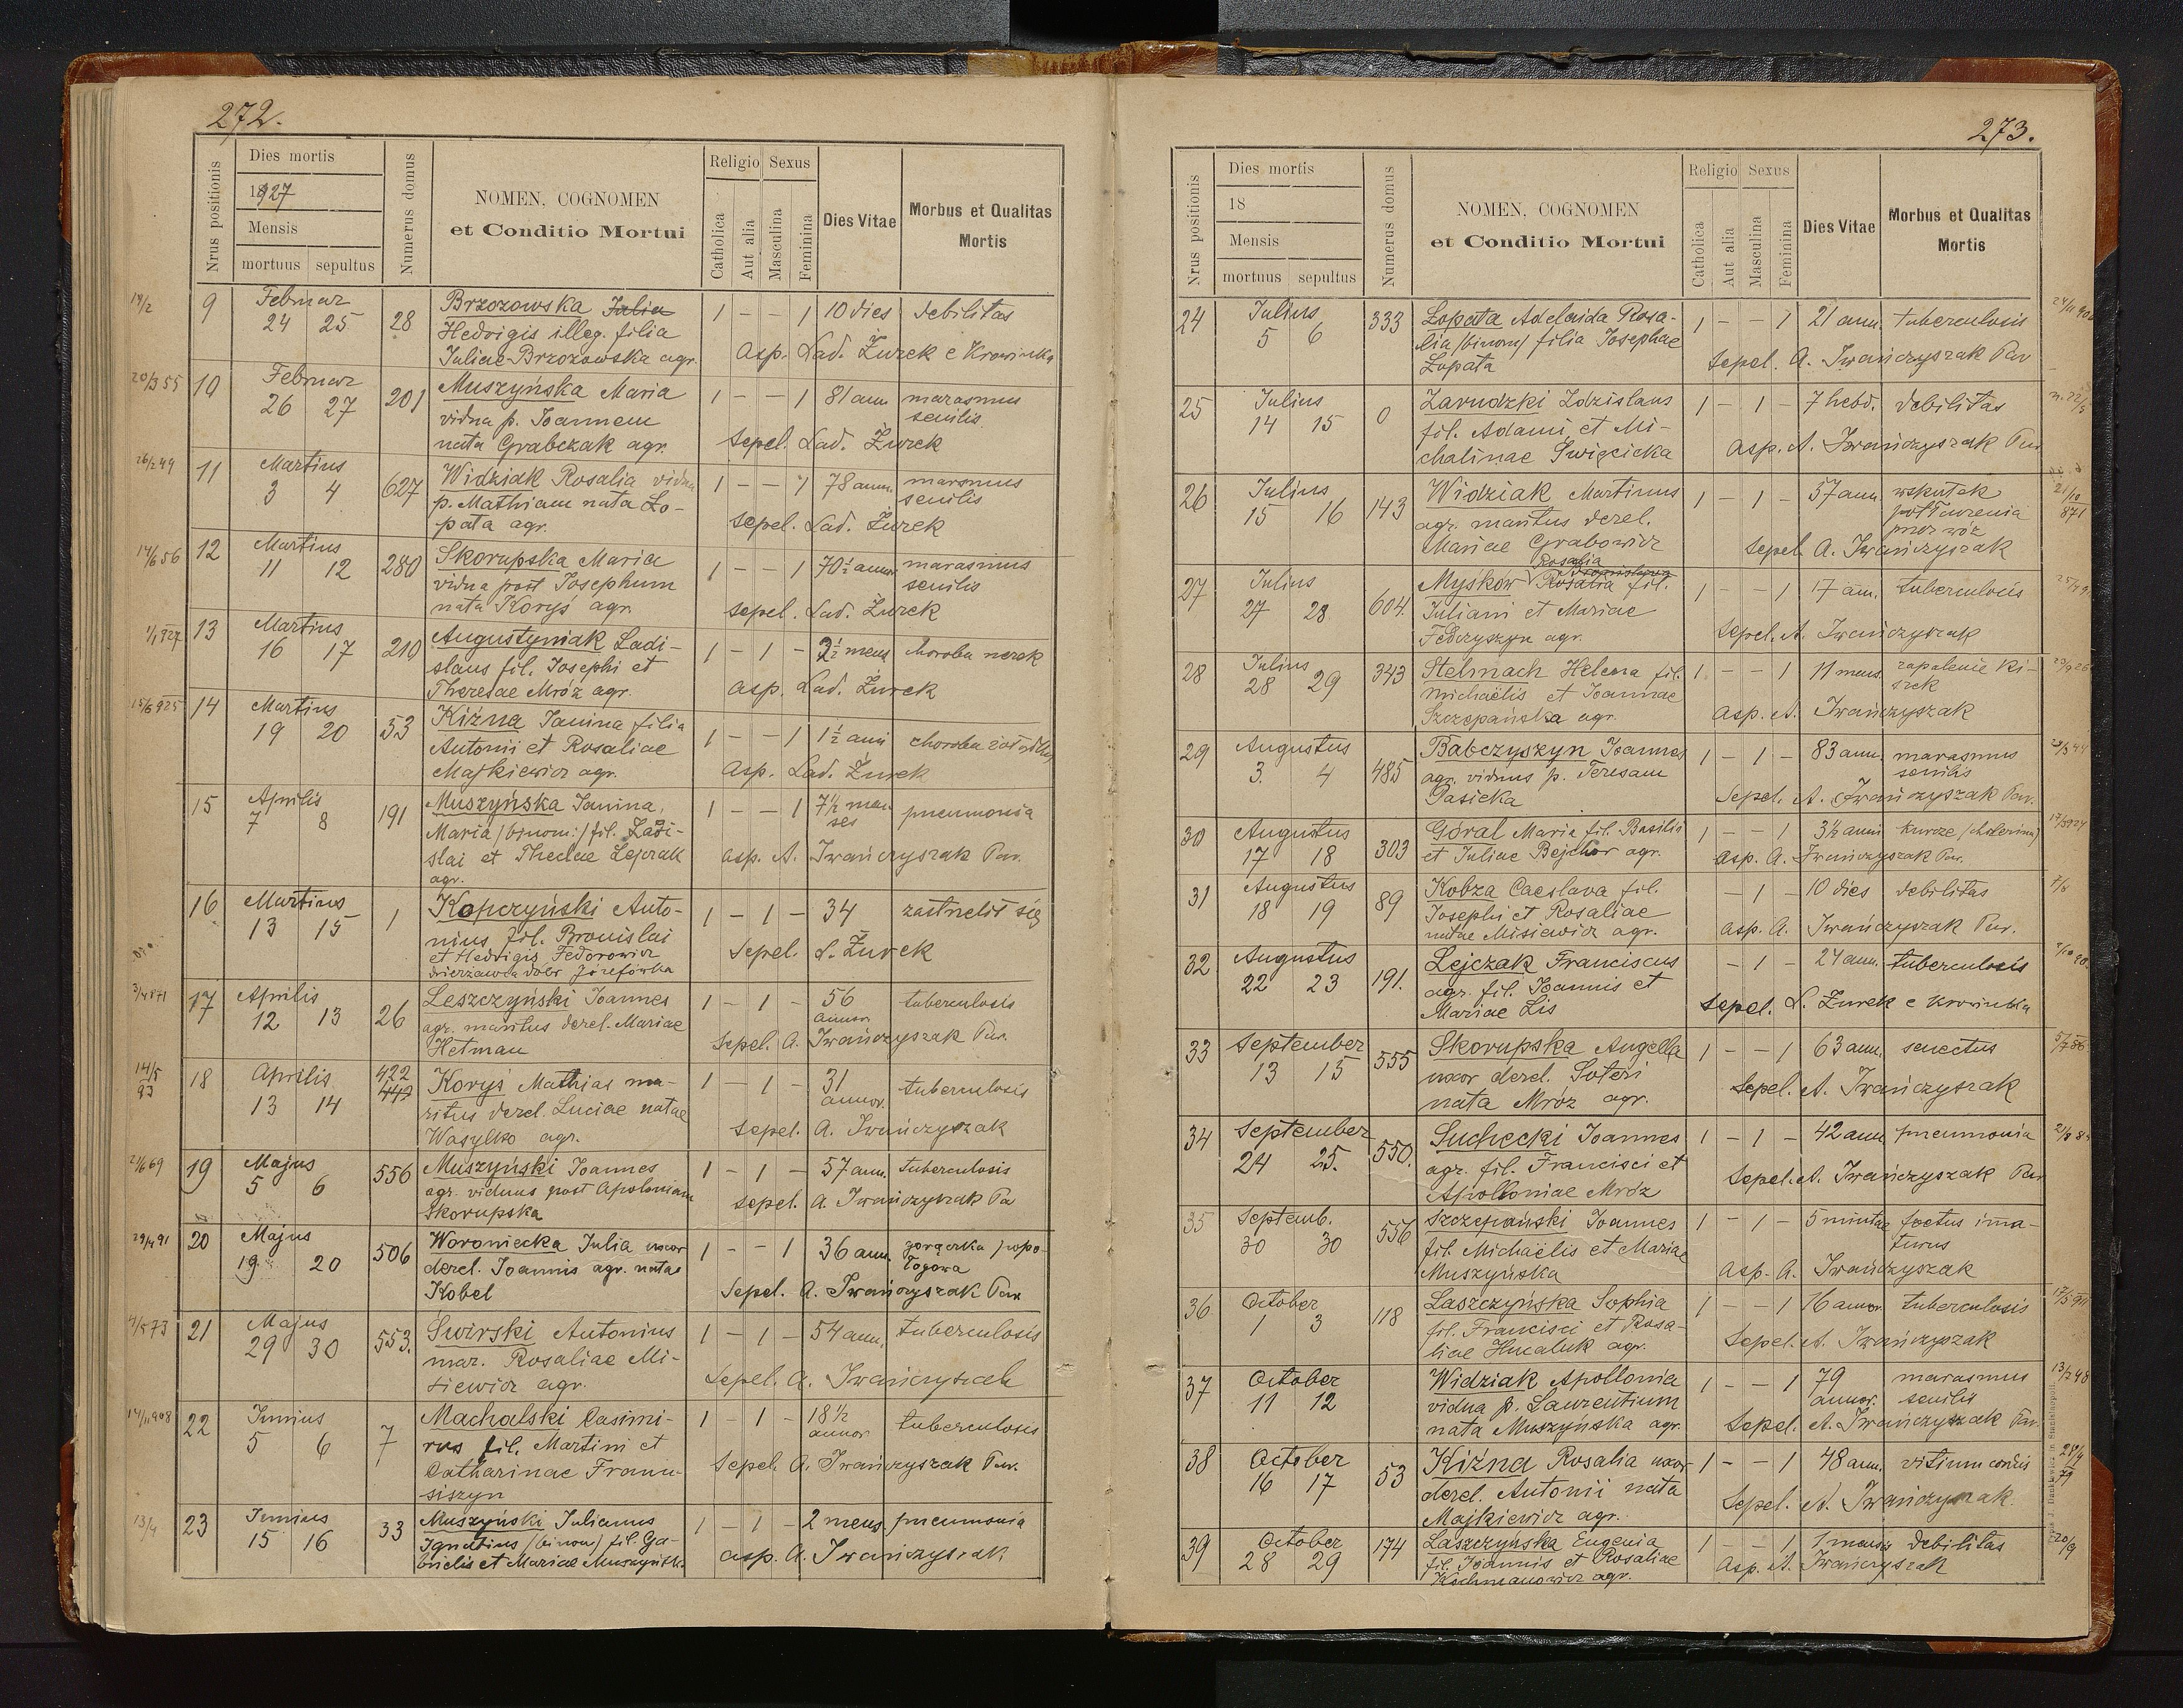 272.
Nrus positionis
Dies mortis
1927
Mensis
mortuus sepultus
Numerus domus
NOMEN, COGNOMEN
et Conditio Mortui
Religio Sexus
Catholica
Aut alia
Masculina
Feminina
Dies Vitae
Morbus et Qualitas
Mortis
9 Februar 24 25 28 Brzozowska Julia 1 - - 1 10 dies debilitas
Hedvigis illeg. filia
Juliae Brzozowska agr. asp. Lad. Żurek e Krowinka
20/3 55 10 Februar 26 27 201 Muszyńska Maria 1 - - 1 81 ann. marasmus
vidua p. Joannem senilis
nata Grabczak agr. Sepel. Lad. Żurek
26/2 49 11 Martius 3 4 627 Widziak Rosalia vidua 1 - - 1 78 ann. marasmus
p. Mathiam nata Ło- senilis
pata agr. Sepel. Lad. Żurek
14/6 56 12 Martius 11 12 280 Skorupska Maria 1 - - 1 70 1/2 annor. marasmus
vidua post Josephum senilis
nata Koryś agr. Sepel. Lad. Żurek
1/1 927 13 Martius 16 17 210 Augustyniak Ladi- 1 - 1 - 2 1/2 mens choroba nerek
slaus fil. Josephi et
Theresae Mróz agr. asp. Lad. Żurek
15/6 925 14 Martius 19 20 53 Kiźna Janina filia 1 - - 1 1 1/2 anni choroba
Antonii et Rosaliae
Majkiewicz agr. asp. Lad. Żurek
15 Aprilis 7 8 191 Muszyńska Janina, 1 - - 1 7 1/2 men- pneumonia
Maria /binom:/ fil. Ladi- ses
slai et Theclae Lejczak asp. A. Iwańczyszak Par.
agr.
16 Martius 13 15 1 Kopczyński Anto- 1 - 1 - 34 zastrzelił się
nius fil. Bronislai
et Hedvigis Fedorowicz Sepel. L. Żurek
dzierżawca dóbr Józefówka
3/4 871 17 Aprilis 12 13 26 Leszczyński Joannes 1 - 1 - 56 tuberculosis
agr. maritus derel. Mariae annor.
Hetman Sepel. A. Iwańczyszak Par.
14/5 93 18 Aprilis 13 14 422 Koryś Mathias ma- 1 - 1 - 31 tuberculosis
ritus derel. Luciae natae annor.
Wasylko agr. Sepel. A. Iwańczyszak
21/6 69 19 Majus 5 6 556 Muszyński Joannes 1 - 1 - 57 ann. tuberculosis
agr. viduus post Apoloniam
Skorupska Sepel. A. Iwańczyszak Pa
29/4 91 20 Majus 19 20 506 Woroniecka Julia uxor 1 - - 1 36 ann. gorączka popo-
derel. Joannis agr. natae łogowa
Kobel Sepel. A. Iwańczyszak Par
4/5 73 21 Majus 29 30 553. Świrski Antonius 1 - 1 - 54 ann. tuberculosis
mar. Rosaliae Mi-
siewicz agr. Sepel. A. Iwańczyszak
14/11 908 22 Junius 5 6 7 Machalski Casimi- 1 - 1 - 18 1/2 tuberculosis
rus fil. Martini et annor
Catharinae Franu- Sepel. A. Iwańczyszak Par.
siszyn
13/4 23 Junius 15 16 33 Muszyński Julianus 1 - 1 - 2 mens. pneumonia
Ignatius /binom/ fil. Ga-
brielis et Mariae Muszyńsk. asp. A. Iwańczyszak
273.
Nrus positionis
Dies mortis
18
Mensis
mortuus sepultus
Numerus domus
NOMEN, COGNOMEN
et Conditio Mortui
Religio Sexus
Catholica
Aut alia
Masculina
Feminina
Dies Vitae
Morbus et Qualitas
Mortis
24 Julius 5 6 333 Łopata Adelaida Rosa- 1 - - 1 21 ann. tuberculosis
lia /binom/ filia Josephae
Łopata Sepel. A. Iwańczyszak Par
25 Julius 14 15 0 Zarudzki Zdzislaus 1 - 1 - 7 hebd. debilitas
fil. Adami et Mi-
chalinae Święcicka asp. A. Iwańczyszak Par
26 Julius 15 16 143 Widziak Martinus 1 - 1 - 57 ann. wskutek 21/10 871
agr. maritus derel. potłuczenia
Mariae Grabowicz przez wóz
Sepel A. Iwańczyszak
Rosalia
27 Julius 27 28 604 Myśków Rosalia fil. 1 - - 1 17 ann. tuberculosis
Juliani et Mariae
Fedczyszyn agr. Sepel. A. Iwańczyszak
28 Julius 28 29 343 Stelmach Helena fil. 1 - - 1 11 mens. zapalenie ki-
Michaëlis et Joannae szek
Szczepańska agr. asp. A. Iwańczyszak
29 Augustus 3 4 485 Babczyszyn Joannes 1 - 1 - 83 ann. marasmus
agr. viduus p. Teresam senilis
Pasieka Sepel. A. Iwańczyszak Par.
30 Augustus 17 18 303 Góral Maria fil. Basilii 1 - - 1 3 1/2 anni kurcze /cholerina/
et Juliae Bejchor agr. asp. A. Iwańczyszak Par.
31 Augustus 18 19 89 Kobza Caeslava fil. - 1 - 10 dies debilitas
Josephi et Rosaliae
natae Misiewicz agr. asp. A. Iwańczyszak Par.
32 Augustus 22 23 191. Lejczak Franciscus - 1 - 24 ann. tuberculosis
agr. fil. Joannis et
Mariae Lis Sepel. L. Żurek e Krowinka
33 September 13 15 555 Skorupska Angella 1 - - 1 63 ann. senectus
uxor derel. Soteri
nata Mróz agr. Sepel. A. Iwańczyszak
34 September 24 25. 550. Suchecki Joannes 1 - 1 - 42 ann pneumonia
agr. fil. Francisci et
Apolloniae Mróz Sepel. A. Iwańczyszak Par
35 Septemb. 30 30 556 Szczepański Joannes 1 - 1 - 5 minutae foetus ima-
fil. Michaëlis et Mariae turus
Muszyńska asp. A. Iwańczyszak
36 October 1 3 118 Laszczyńska Sophia 1 - - 1 16 annor. tuberculosis
fil. Francisci et Rosa-
liae Hucaluk agr. Sepel. A. Iwańczyszak
37 October 11 12 Widziak Apollonia 1 - - 1 79 marasmus
vidua p. Laurentium annor. senilis
nata Muszyńska agr. Sepel. A. Iwańczyszak Par.
38 October 16 17 53 Kiźna Rosalia uxor 1 - - 1 48 ann. vitium cordis
derel. Antonii nata
Majkiewicz agr. Sepel. A. Iwańczyszak
39 October 28 29 174 Laszczyńska Eugenia 1 - - 1 1 mensis debilitas 20/9
fil. Joannis et Rosaliae asp. A. Iwańczyszak
Kochmanowicz agr.